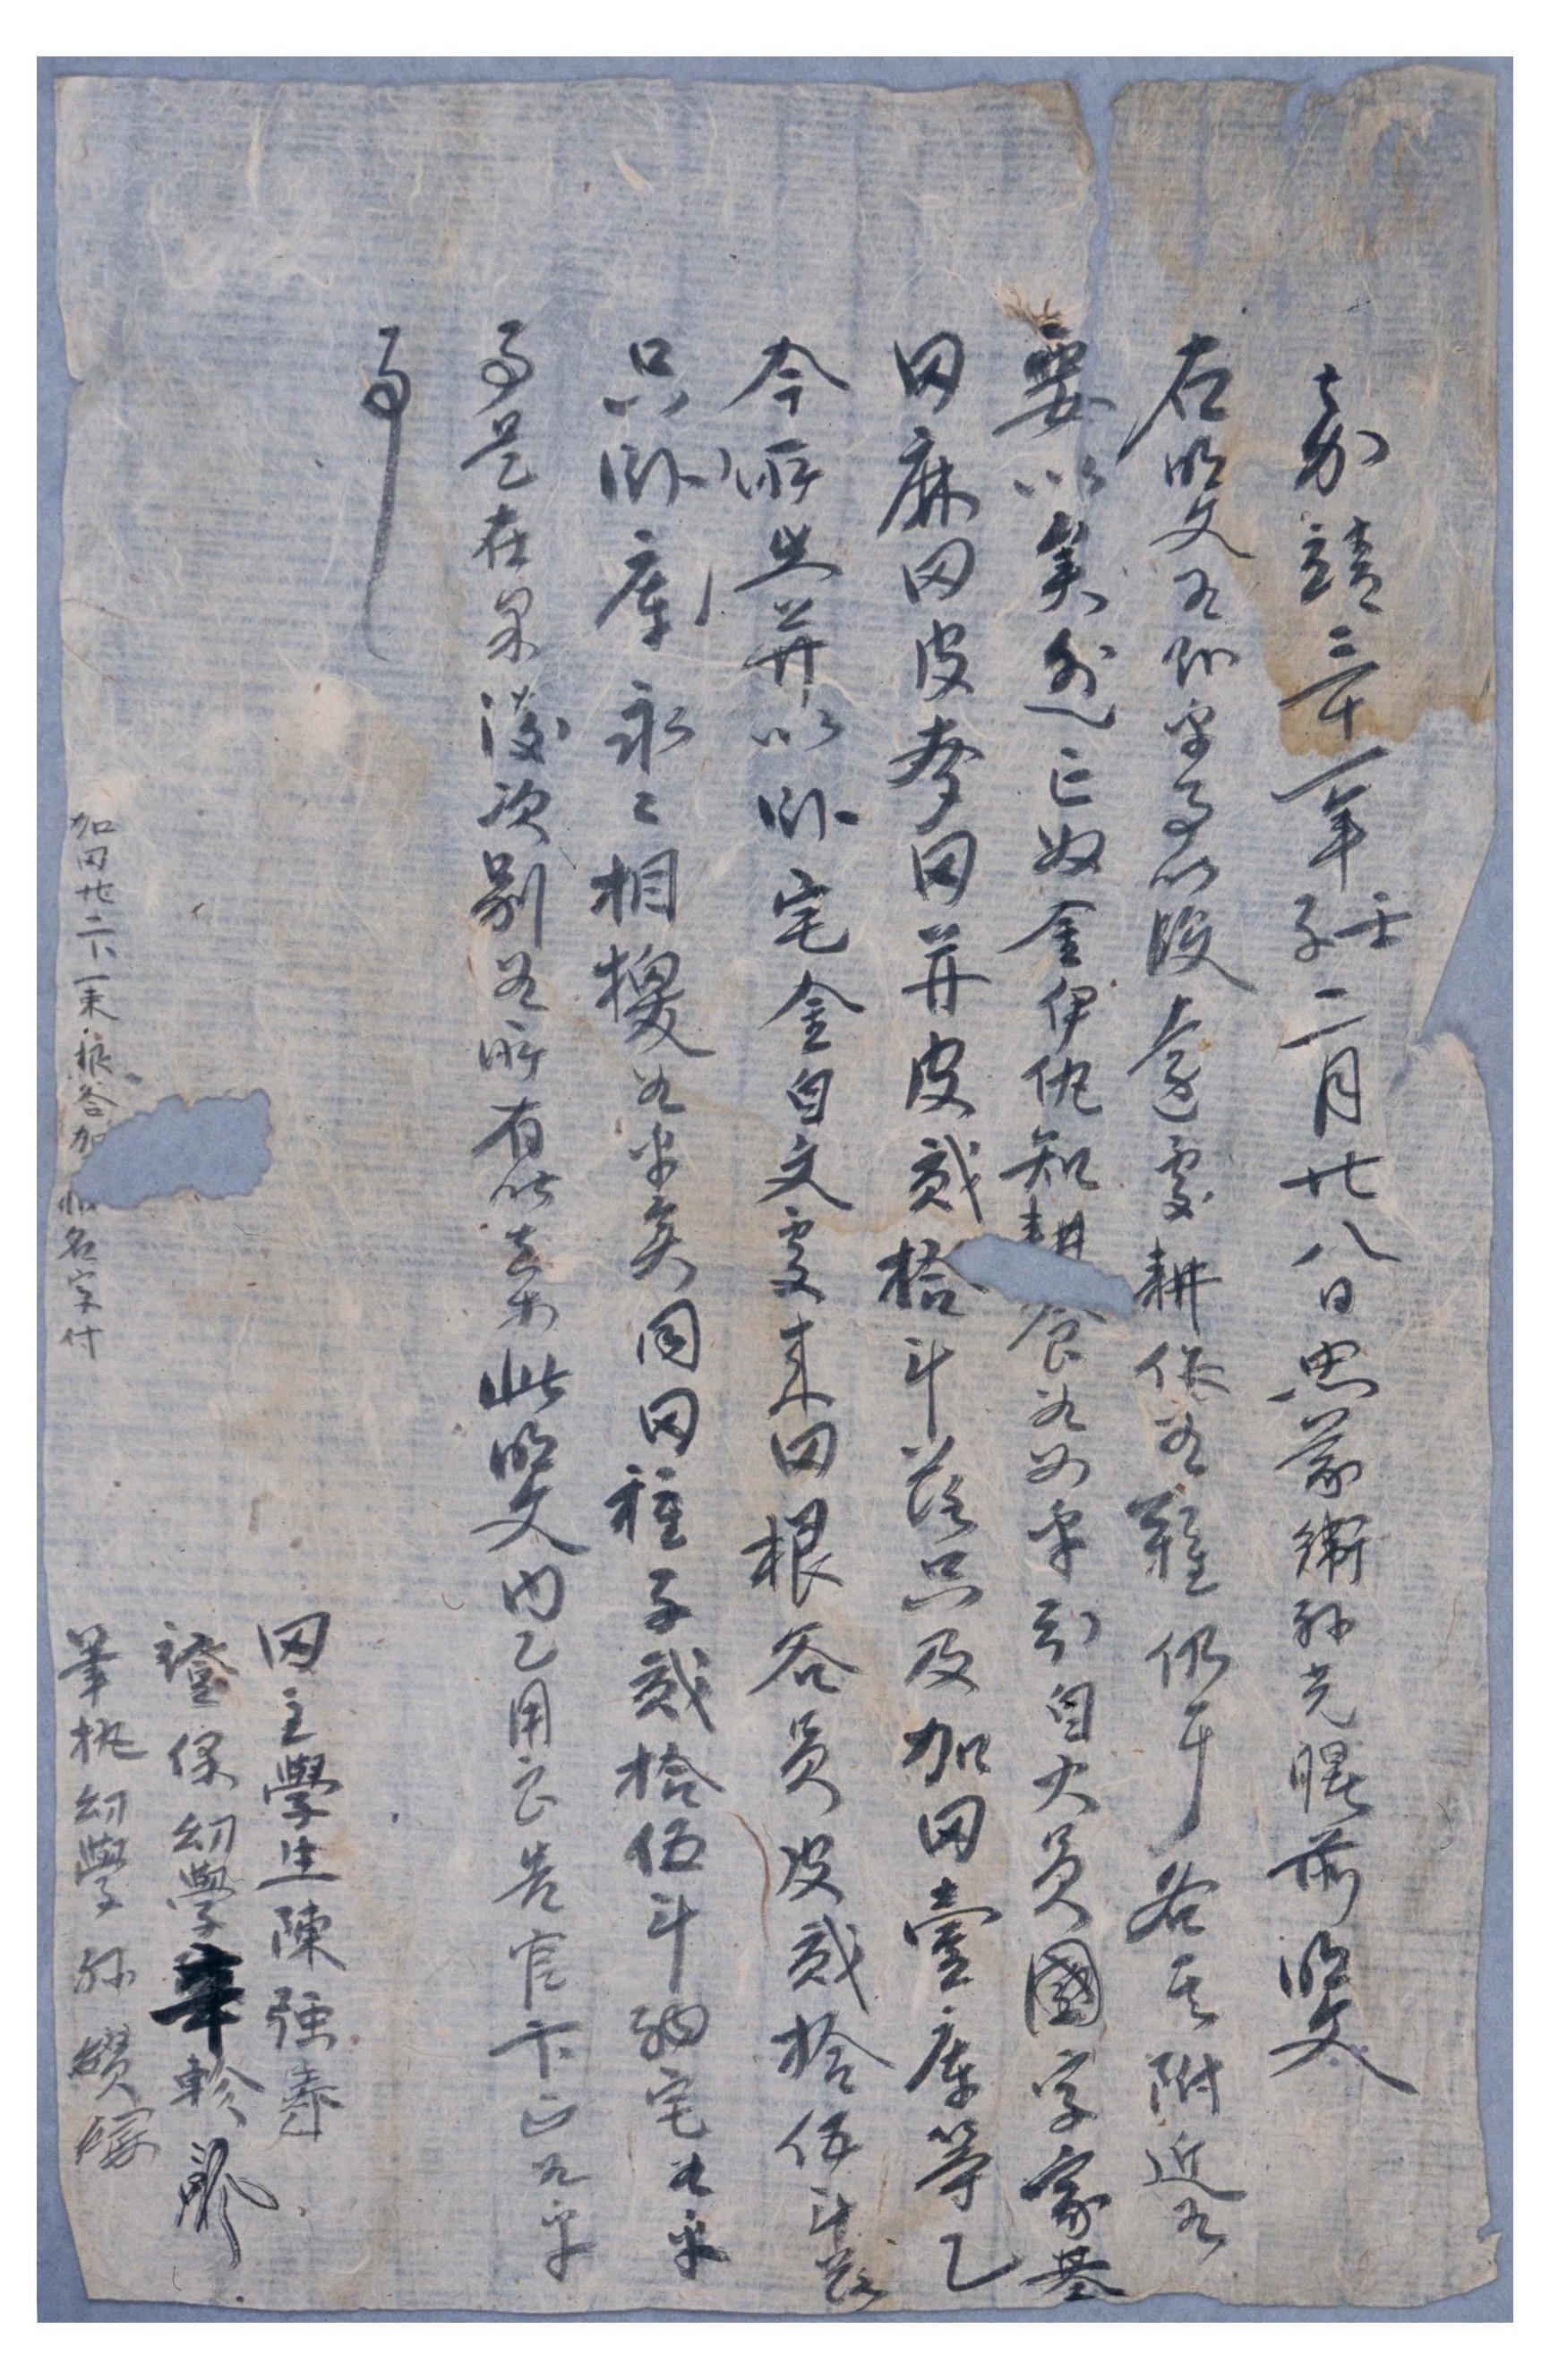 嘉靖三十一年壬子二月廿八日忠義衛孫光晛前明文
右明文爲臥乎事叱段遠處耕作爲難仍于各其附近爲
要以矣邊亡奴金伊他知耕食爲如乎引自大員國字家基
田麻田皮麥田幷皮貳拾斗落只及加田壹庫等乙
今所生幷以臥宅金自文處來田根谷員皮貳拾伍斗落
只臥庫永永相換爲乎矣同田種子貳拾伍斗納宅爲乎
事是在果後次別爲所有去等此明文內乙用良告官卞正爲乎
事
田主學生陳强壽
證保幼學辛軫
筆執幼學孫
加田廿二卜一束根谷加 名字付